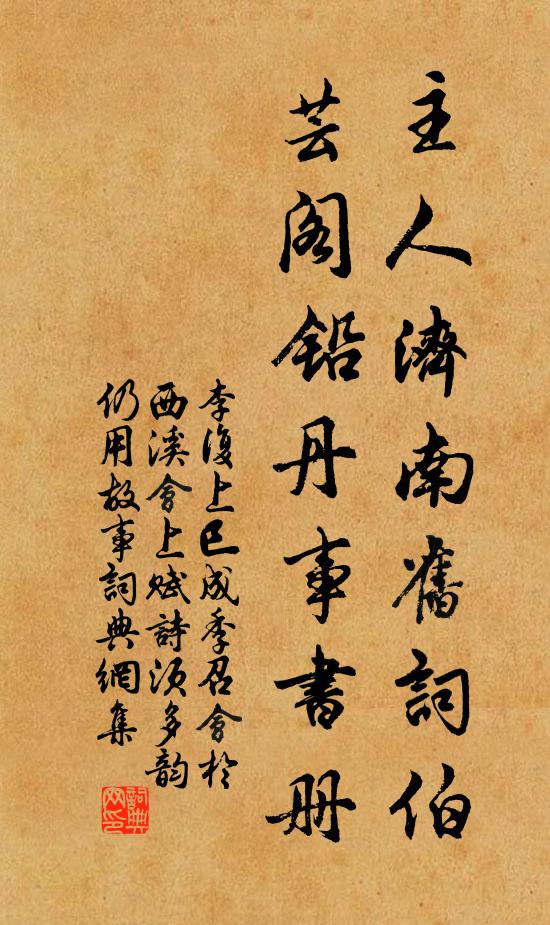 主人濟南舊詞伯
芸閣鉛丹事書册
李復上巳成季召會於
西溪會上賦詩須多韵
仍用故事詞典網集
詞典
网印